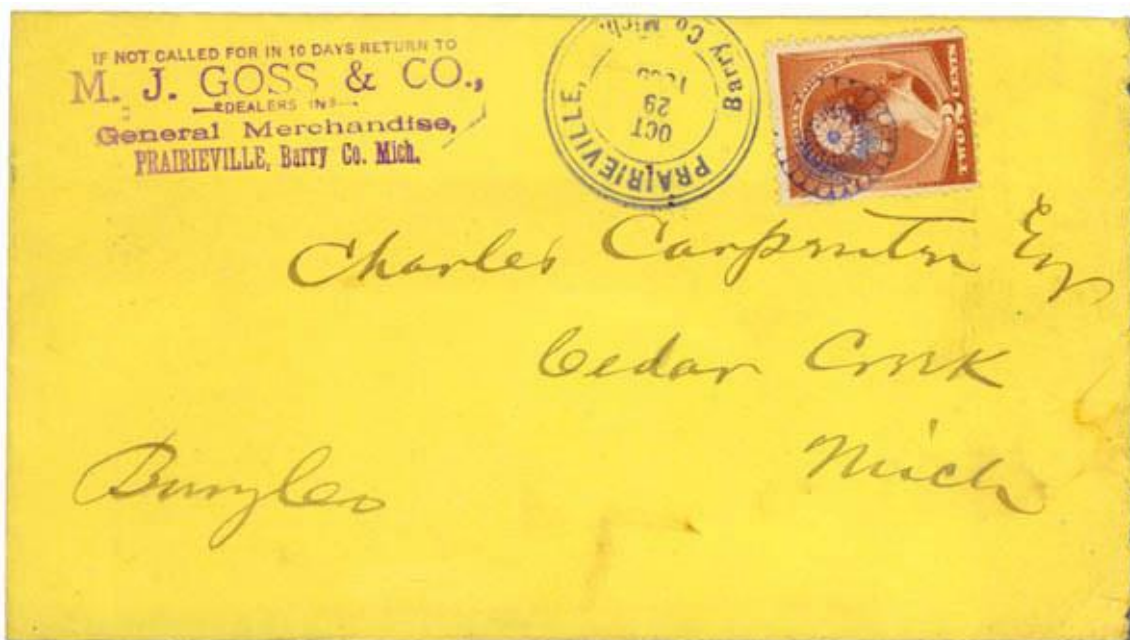 IF NOT CALLED FOR IN 10 DAYS RETURN TO
M. J. GOSS & CO.,
DEALERS IN
General Merchandise,
PRAIRIEVILLE, Barry Co. Mich.
PRAIRIEVILLE, Barry Co Mich.
OCT
29
2 CENTS
TWO
Charles Carpenter Esq
Cedar Creek
Mich